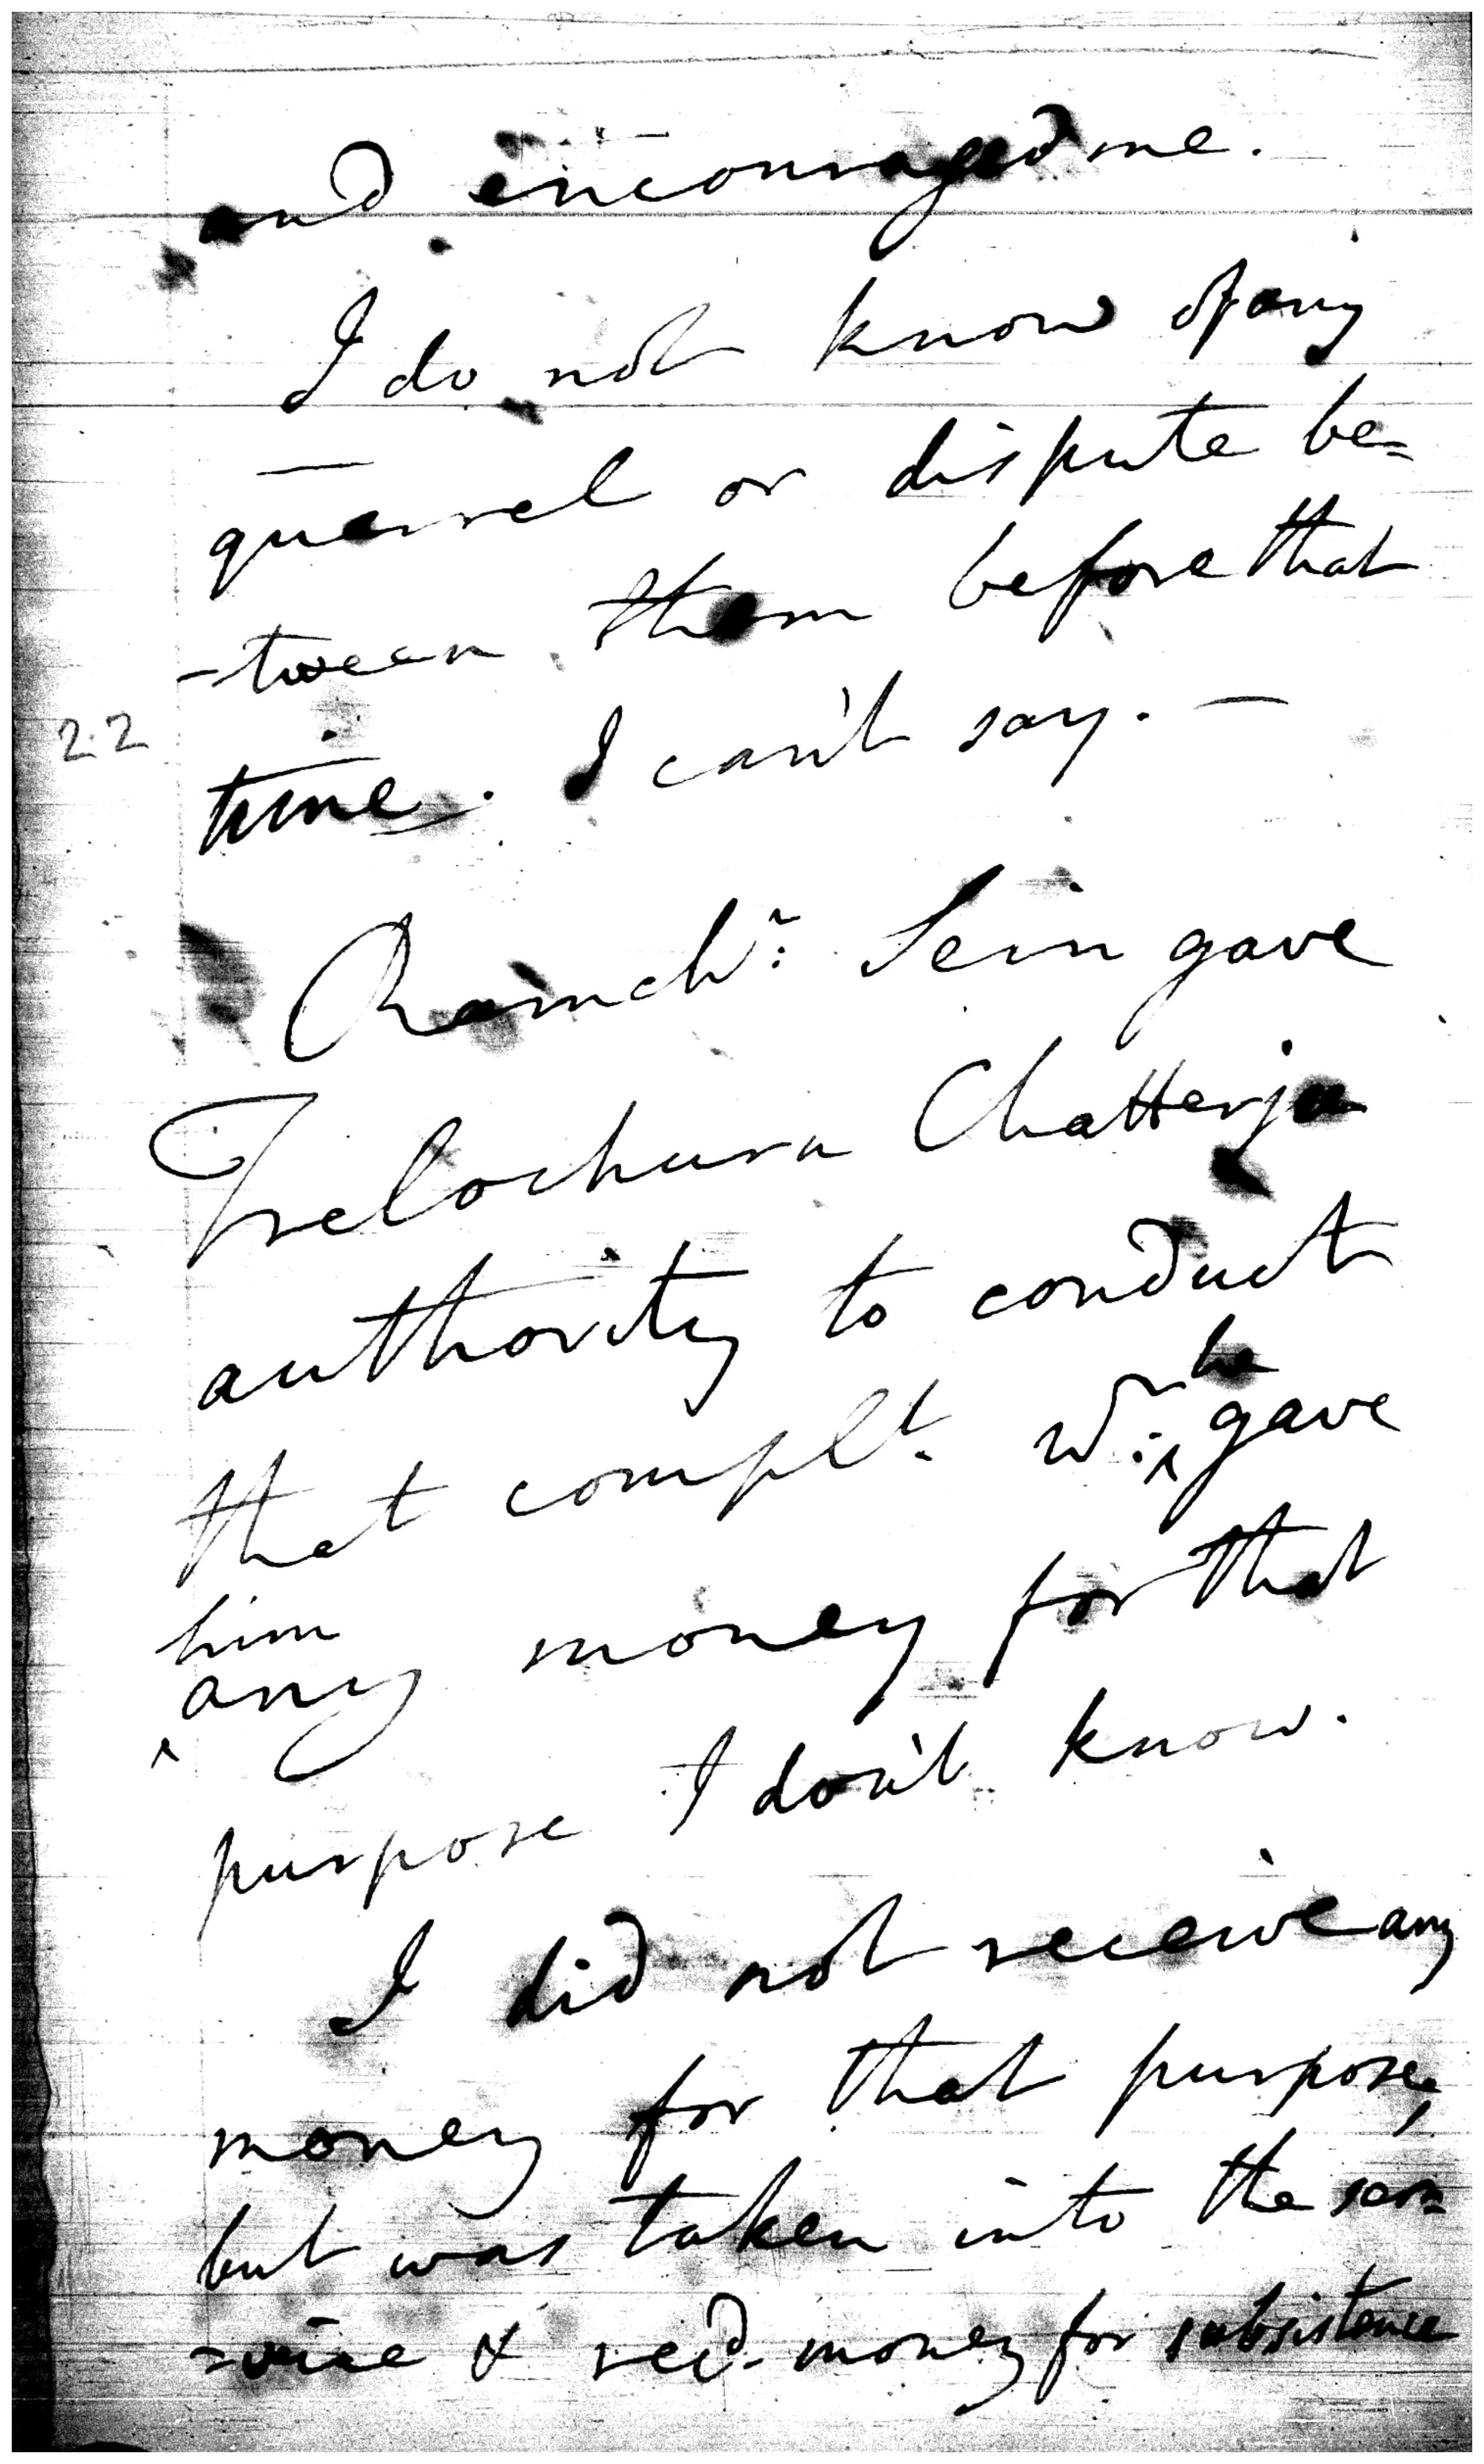 and encouraged me.
I do not know of any
quarrel or dispute be=
-tween them before that
22
time. I can't say. —
Ramchr: Sein gave
Trelochurn Chatterjea
authority to conduct
that complt. Wr: he gave
him
any money for that
purpose I don't know.
I did not receive any
money for that purpose,
but was taken into the ser=
=vice & recd. money for subsistence